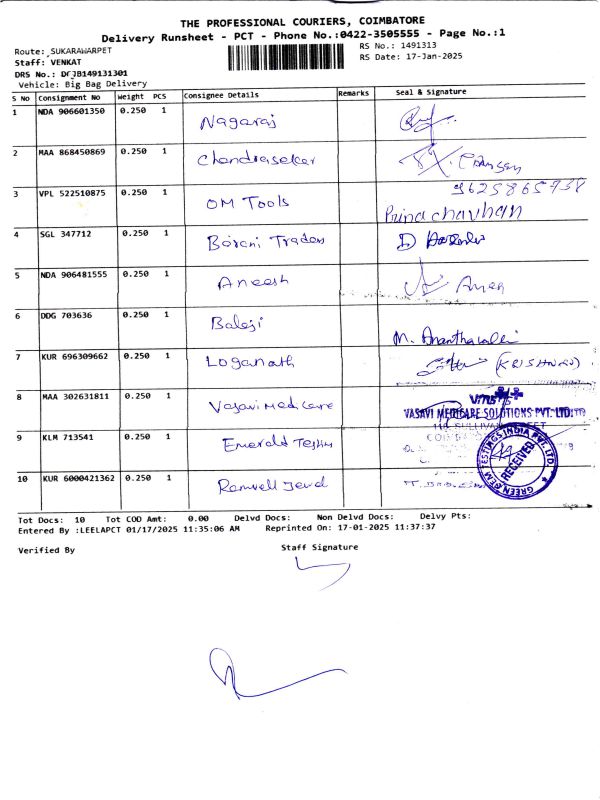 THE PROFESSIONAL COURIERS, COIMBATORE
Delivery Runsheet - PCT - Phone No.:0422-3505555 - Page No.:1
Route: SUKARAWARPET
RS No.: 1491313
Staff: VENKAT
RS Date: 17-Jan-2025
DRS No.: DFJB149131301
Vehicle: Big Bag Delivery
S No Consignment No Weight PCS Consignee Details Remarks Seal & Signature
1 NDA 906601350 0.250 1 Nagaraj
2 MAA 868450869 0.250 1 Chandrasekar
9625865938
3 VPL 522510875 0.250 1 OM Tools
4 SGL 347712 0.250 1 Traders
5 NDA 906481555 0.250 1 Aneesh
6 DDG 703636 0.250 1 Balaji
7 KUR 696309662 0.250 1 Loganath
8 MAA 302631811 0.250 1 Vasavi Medicare
VASAVI MEDICARE SOLUTIONS PVT. LTD
9 KLM 713541 0.250 1 Emerald
GREEN GEM TESTINGS INDIA PVT. LTD.
RECEIVED
10 KUR 6000421362 0.250 1
Tot Docs: 10 Tot COD Amt: 0.00 Delvd Docs: Non Delvd Docs: Delvy Pts:
Entered By :LEELAPCT 01/17/2025 11:35:06 AM Reprinted On: 17-01-2025 11:37:37
Verified By Staff Signature